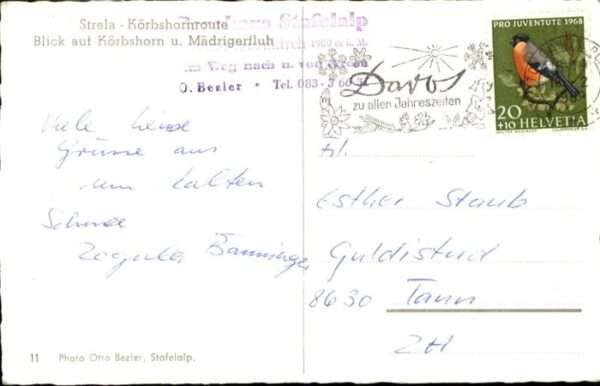 Strela - Körbshornroute
Blick auf Körbshorn u. Mädrigerfluh
Stafelalp
1900 m ü. M.
Weg nach u. von
O. Bezler • Tel. 083 - 3 60
Davos
zu allen Jahreszeiten
PRO JUVENTUTE 1968
20
+10 HELVETIA
Viele liebe
Grüsse aus
dem kalten
Schnee
Regula
Frl.
Esther Staub
8630 Tann
ZH
11 Photo Otto Bezler, Stafelalp.